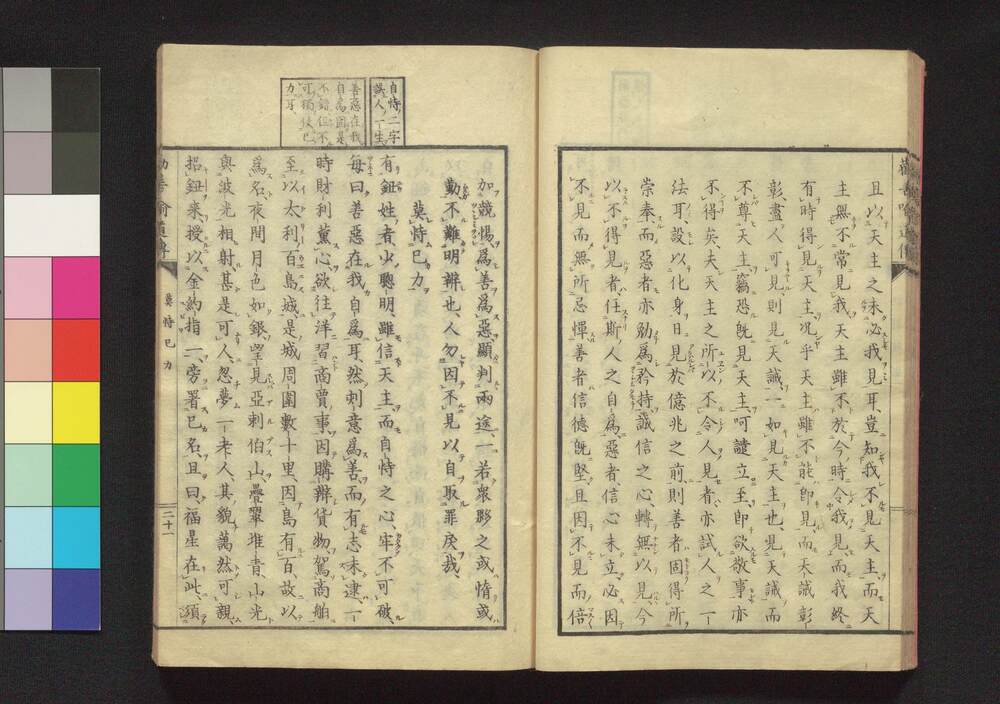 且以天主之未必我見耳豈知我不見天主而天
主無不常見我天主雖不於今時令我見而我終
有時得見天主况乎天主雖不能即見而天誡彰
彰盡人可見則見天誡一如見天主也見天誡而
不尊天主竊恐既見天主呵譴立至即欲敬事亦
不得矣夫天主之所以不令人見者亦試人之一
法耳設以化身日見於億兆之前則善者固得所
崇奉而惡者亦劾為矜持誠信之心轉無以見今
以不得見者任斯人之自為惡者信心未立必因
不見而無所忌憚善者信德既堅且因不見而倍
加兢惕為善為惡顯判兩途一若衆夥之或惰或
勤不難明辨也人勿因不見以自取罪戾哉
莫恃已力
有鈕姓者少聰明雖信天主而自恃之心牢不可破
每曰善惡在我自為耳然刺意為善而有志未逮一
時財利薰心欲往洋習商賈事因購辦貨物駕商舶
至以太利百島城是城周圍數十里因島有百故以
為名夜間月色如銀望見亞刺伯山疊翠堆青山光
與波光相射甚是可人忽夢一老人其貌藹然可親
招鈕来授以金約指一旁署已名且曰福星在此須
自恃二字
誤人一生
善惡在我
自為固是
不錯但不
可獨仗已
力耳
莫恃已力
二十一